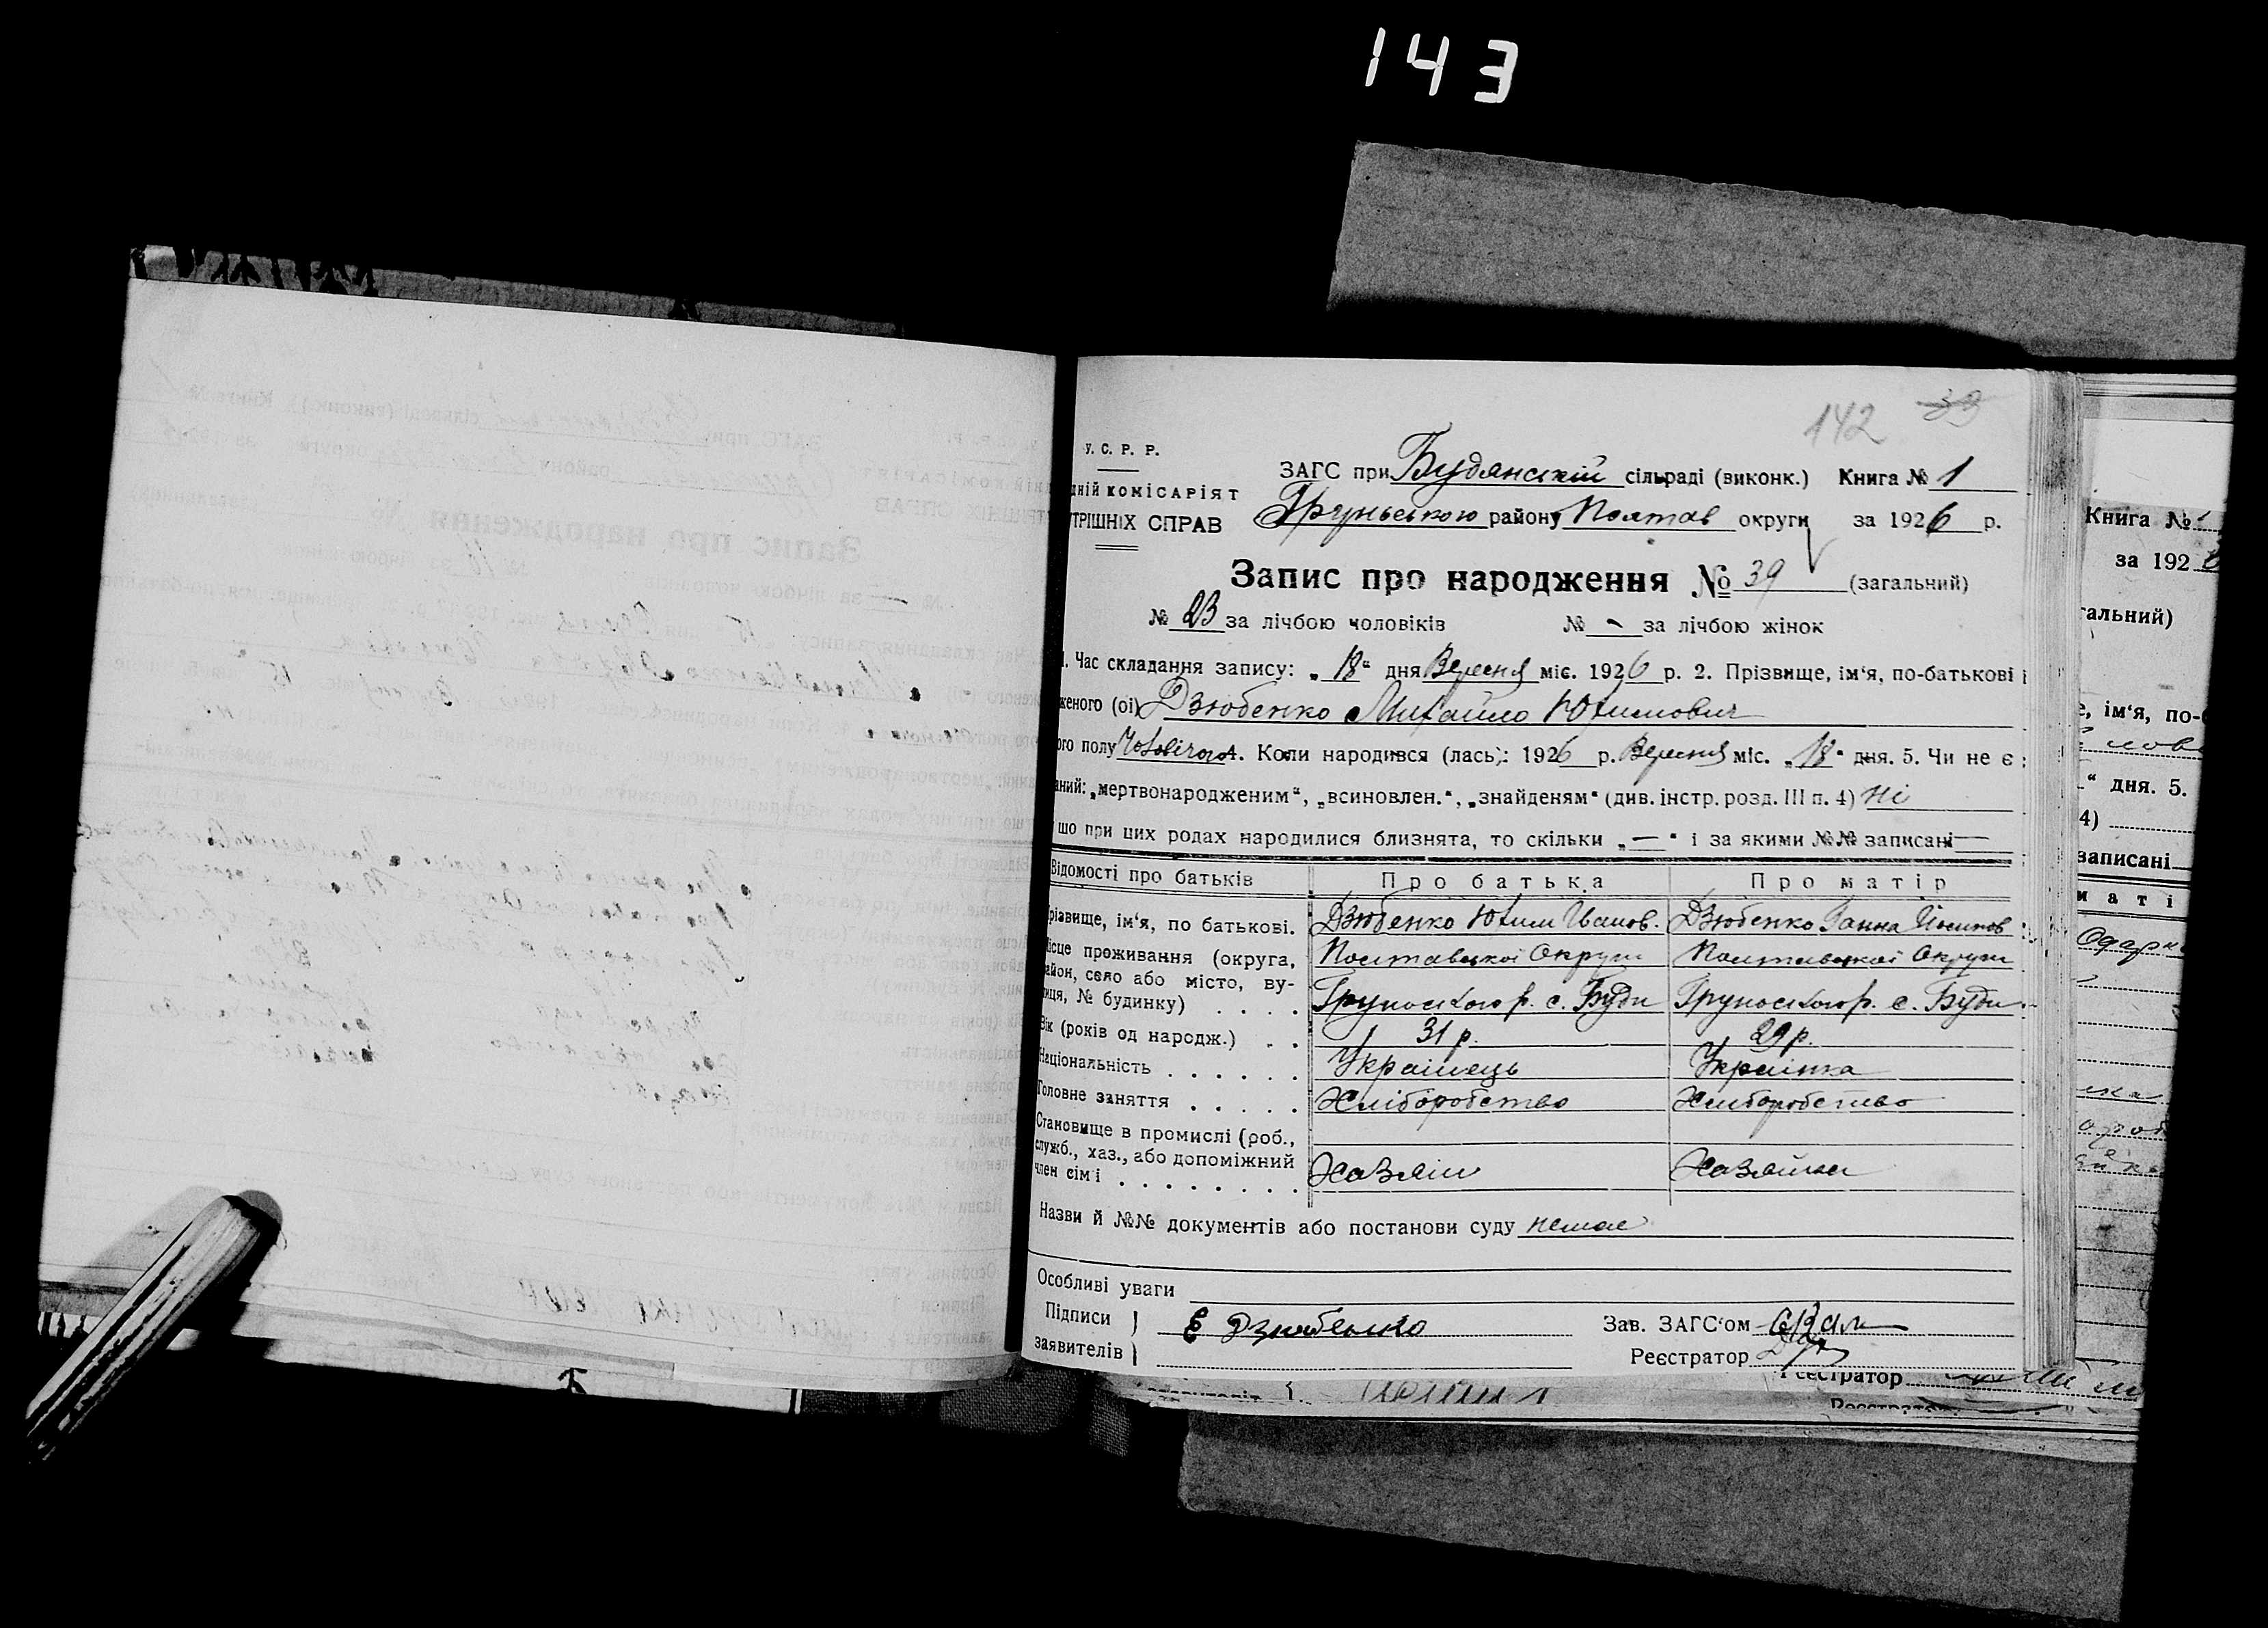 143
142 39
У. С. Р. Р.
ЗАГС при Будянській сільраді (виконк.) Книга № 1
дній КОМІСАРІЯТ
Груньського району Полтав округи за 1926 р.
ТРІШНІХ СПРАВ
Запис про народження № 39 (загальний)
№ 23 за лічбою чоловіків № - за лічбою жінок
1. Час складання запису: „18“ дня Вересня міс. 1926 р. 2. Прізвище, ім‘я, по-батькові і
женого (ої) Дзюбенко Михайло Юхимович
ого полу 4. Коли народився (лась): 1926 р. Вересня міс. „18“ дня. 5. Чи не є
аний: „мертвонародженим“, „всиновлен.“, „знайденям“ (див. інстр. розд. III п. 4) ні
що при цих родах народилися близнята, то скільки „—“ і за якими №№ записані —
Відомості про батьків Про батька Про матір
різвище, ім‘я, по батькові. Дзюбенко Юхим Іванов. Дзюбенко Ганна Йосипов
ісце проживання (округа, Полтавської Округи Полтавської Округи
айон, село або місто, ву-
иця, № будинку) . . . . р. с. Буди р. с. Буди
Вік (років од народж.) . . 31 р. 29 р.
Національність . . . . . . Українець Українка
Головне заняття . . . . . Хліборобство Хліборобство
Становище в промислі (роб.,
служб., хаз., або допоміжний
член сім‘ї . . . . . . . . Хазяін Хазяйка
Назви й №№ документів або постанови суду немає
Особливі уваги
Підписи Дзюбенко Зав. ЗАГС‘ом
заявителів Реєстратор
Книга №
за 192
гальний)
е, ім‘я, по-
“ дня. 5.
4)
записані
м а т і
Реєстратор